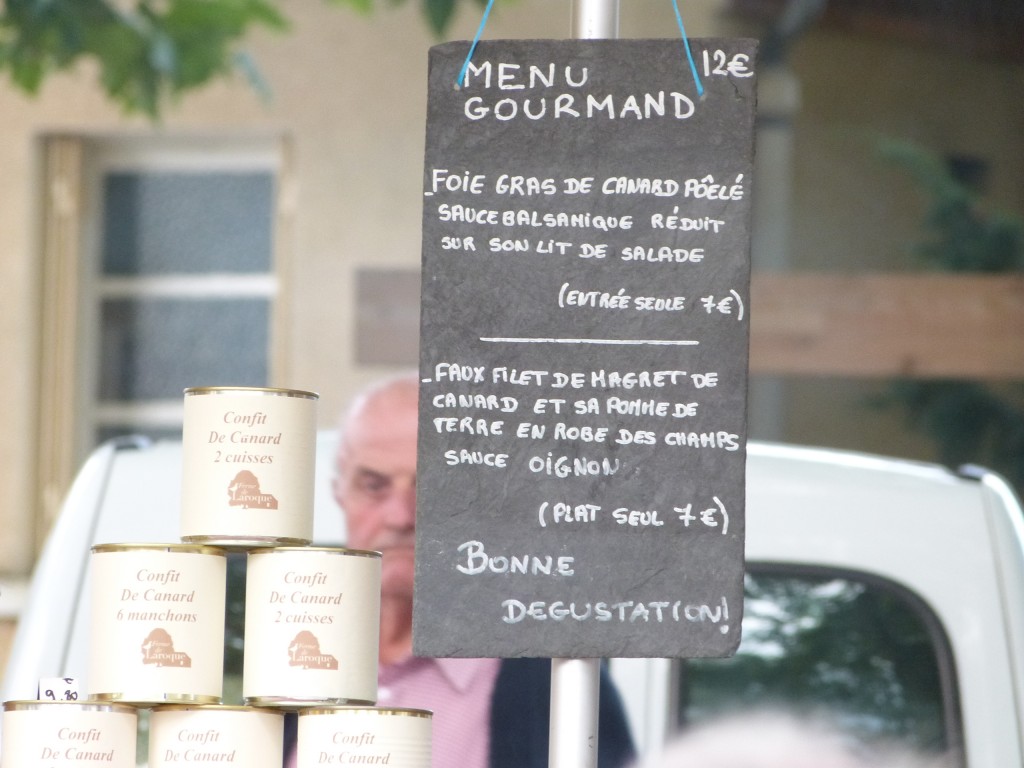 MENU 12€
GOURMAND
-FOIE GRAS DE CANARD PÔÊLÉ
SAUCE BALSAMIQUE RÉDUIT
SUR SON LIT DE SALADE
(ENTRÉE SEULE 7€)
-FAUX FILET DE MAGRET DE
CANARD ET SA POMME DE
TERRE EN ROBE DES CHAMPS
SAUCE OIGNON
(PLAT SEUL 7€)
BONNE
DEGUSTATION!
Confit
De Canard
2 cuisses
Laroque
Confit
De Canard
6 manchons
Laroque
Confit
De Canard
2 cuisses
Laroque
9,80
Confit
De Canard
Confit
De Canard
Confit
De Canard